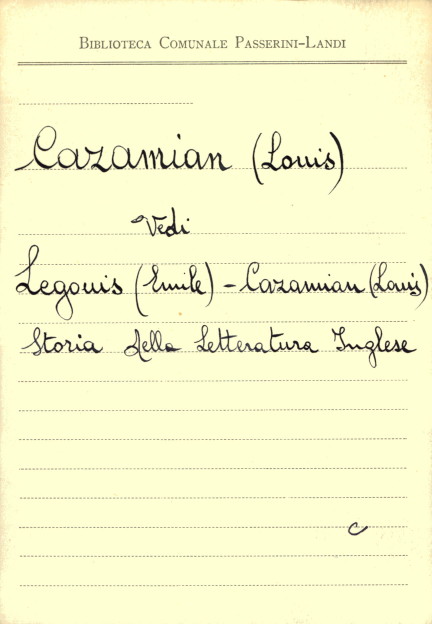 BIBLIOTECA COMUNALE PASSERINI-LANDI
Cazamian (Louis)
Vedi
Legouis (Emile) - Cazamian (Louis)
Storia della Letteratura Inglese
C